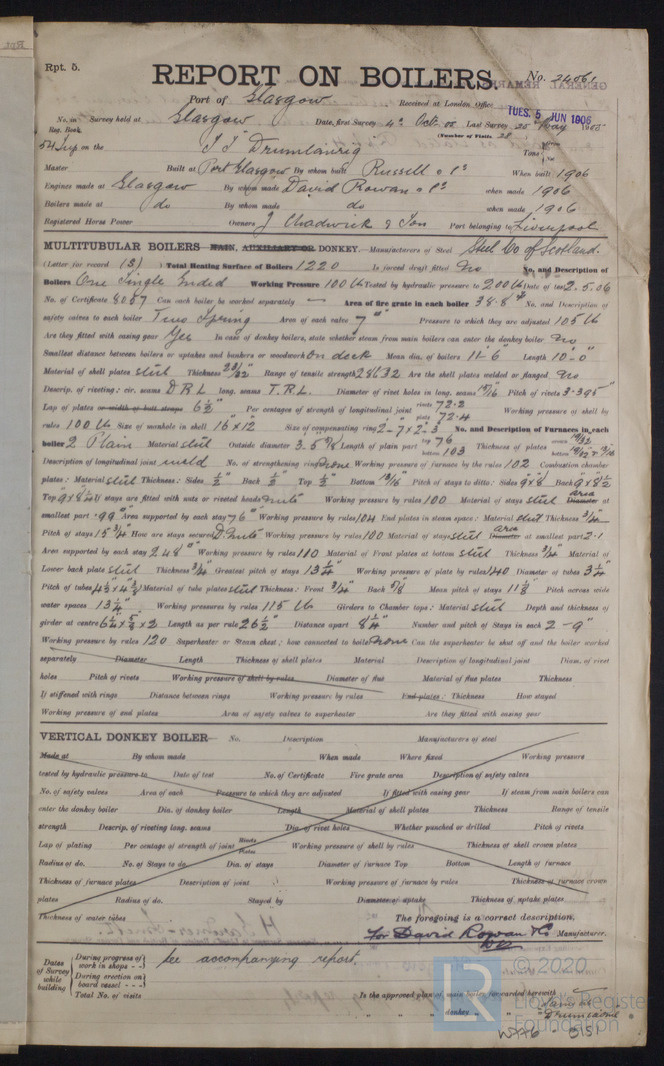 Rpt. 5.
REPORT ON BOILERS.
No. 24061
Port of Glasgow Received at London Office TUES. 5 JUN 1906
No. in Survey held at Glasgow Date, first Survey 4th Oct. 05 Last Survey 25th May 1906
Reg. Book. (Number of Visits 28
54 Sup on the Drumlanrig Tons
Master Built at Port Glasgow By whom built Russell & Co When built 1906
Engines made at Glasgow By whom made David Rowan & Co when made 1906
Boilers made at do By whom made do when made 1906
Registered Horse Power Owners J Chadwick & Son Port belonging to Liverpool
MULTITUBULAR BOILERS MAIN, AUXILIARY OR DONKEY.—Manufacturers of Steel Steel Co of Scotland.
(Letter for record (S)) Total Heating Surface of Boilers 1220 Is forced draft fitted No No. and Description of
Boilers One Single Ended Working Pressure 100 lb Tested by hydraulic pressure to 200 lb Date of test 2.5.06
No. of Certificate 8087 Can each boiler be worked separately — Area of fire grate in each boiler 38.8 No. and Description of
safety valves to each boiler Two Spring Area of each valve 7" Pressure to which they are adjusted 105 lb
Are they fitted with easing gear Yes In case of donkey boilers, state whether steam from main boilers can enter the donkey boiler No
Smallest distance between boilers or uptakes and bunkers or woodwork On deck Mean dia. of boilers 11-6" Length 10-0"
Material of shell plates steel Thickness 23/32 Range of tensile strength 28 & 32 Are the shell plates welded or flanged No
Descrip. of riveting: cir. seams D R L long. seams T.R.L. Diameter of rivet holes in long. seams 15/16 Pitch of rivets 3.395"
Lap of plates or width of butt straps 6½" Per centages of strength of longitudinal joint rivets 72.2 plates 72.4 Working pressure of shell by
rules 100 lb Size of manhole in shell 16" x 12" Size of compensating ring 2-7 x 2-3 No. and Description of Furnaces in each
boiler 2 Plain Material steel Outside diameter 3.5⅞ Length of plain part top 76 bottom 103 Thickness of plates crown 19/32 bottom
Description of longitudinal joint weld No. of strengthening rings None Working pressure of furnace by the rules 102 Combustion chamber
plates: Material steel Thickness: Sides ½" Back ½" Top ½" Bottom 13/16 Pitch of stays to ditto: Sides 9 x 8 Back 9 x 8½
Top 9 x 8¼ If stays are fitted with nuts or riveted heads nuts Working pressure by rules 100 Material of stays steel area Diameter at
smallest part .99" Area supported by each stay 76" Working pressure by rules 104 End plates in steam space: Material steel Thickness ¾
Pitch of stays 15¾ How are stays secured D Nuts Working pressure by rules 100 Material of stays steel area Diameter at smallest part 2.1
Area supported by each stay 248" Working pressure by rules 110 Material of Front plates at bottom steel Thickness ¾ Material of
Lower back plate steel Thickness ¾ Greatest pitch of stays 13¼" Working pressure of plate by rules 140 Diameter of tubes 3¼
Pitch of tubes 4½ x 4⅜ Material of tube plates steel Thickness: Front ¾ Back ⅝ Mean pitch of stays 11⅛ Pitch across wide
water spaces 13¼ Working pressures by rules 115 lb Girders to Chamber tops: Material steel Depth and thickness of
girder at centre 6½ x ⅝ x 2 Length as per rule 26½" Distance apart 8¼" Number and pitch of Stays in each 2-9"
Working pressure by rules 120 Superheater or Steam chest; how connected to boiler None Can the superheater be shut off and the boiler worked
separately Diameter Length Thickness of shell plates Material Description of longitudinal joint Diam. of rivet
holes Pitch of rivets Working pressure of shell by rules Diameter of flue Material of flue plates Thickness
If stiffened with rings Distance between rings Working pressure by rules End plates: Thickness How stayed
Working pressure of end plates Area of safety valves to superheater Are they fitted with easing gear
VERTICAL DONKEY BOILER— No. Description Manufacturers of steel
Made at By whom made When made Where fixed Working pressure
tested by hydraulic pressure to Date of test No. of Certificate Fire grate area Description of safety valves
No. of safety valves Area of each Pressure to which they are adjusted If fitted with easing gear If steam from main boilers can
enter the donkey boiler Dia. of donkey boiler Length Material of shell plates Thickness Range of tensile
strength Descrip. of riveting long. seams Dia. of rivet holes Whether punched or drilled Pitch of rivets
Lap of plating Per centage of strength of joint Rivets Plates Working pressure of shell by rules Thickness of shell crown plates
Radius of do. No. of Stays to do. Dia. of stays Diameter of furnace Top Bottom Length of furnace
Thickness of furnace plates Description of joint Working pressure of furnace by rules Thickness of furnace crown
plates Radius of do. Stayed by Diameter of uptake Thickness of uptake plates
Thickness of water tubes The foregoing is a correct description,
For David Rowan & Co Manufacturer.
Dates of Survey while building
During progress of work in shops - - See accompanying report.
During erection on board vessel - - -
Total No. of visits Is the approved plan of main boiler forwarded herewith
" " " donkey " " "
© 2020
LR
Lloyd's Register
Foundation
W776-0151